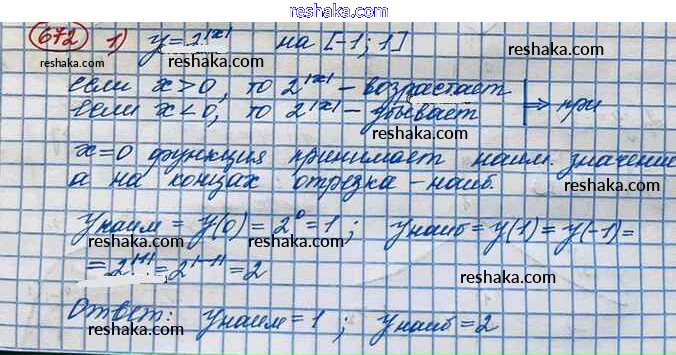 reshak.ru
672 1) y = 2^|x| на [-1; 1]
reshaka.ru
если x > 0, то 2^|x| – возрастает
если x < 0, то 2^|x| – убывает | ⇒ при
reshaka.ru
x = 0 функция принимает наим. значение
а на концах отрезка – наиб.
reshaka.ru
yнаим = y(0) = 2^0 = 1 ; yнаиб = y(1) = y(-1) =
reshaka.ru
= 2^|1| = 2^|-1| = 2
reshaka.ru
Ответ: yнаим = 1 ; yнаиб = 2
reshaka.ru